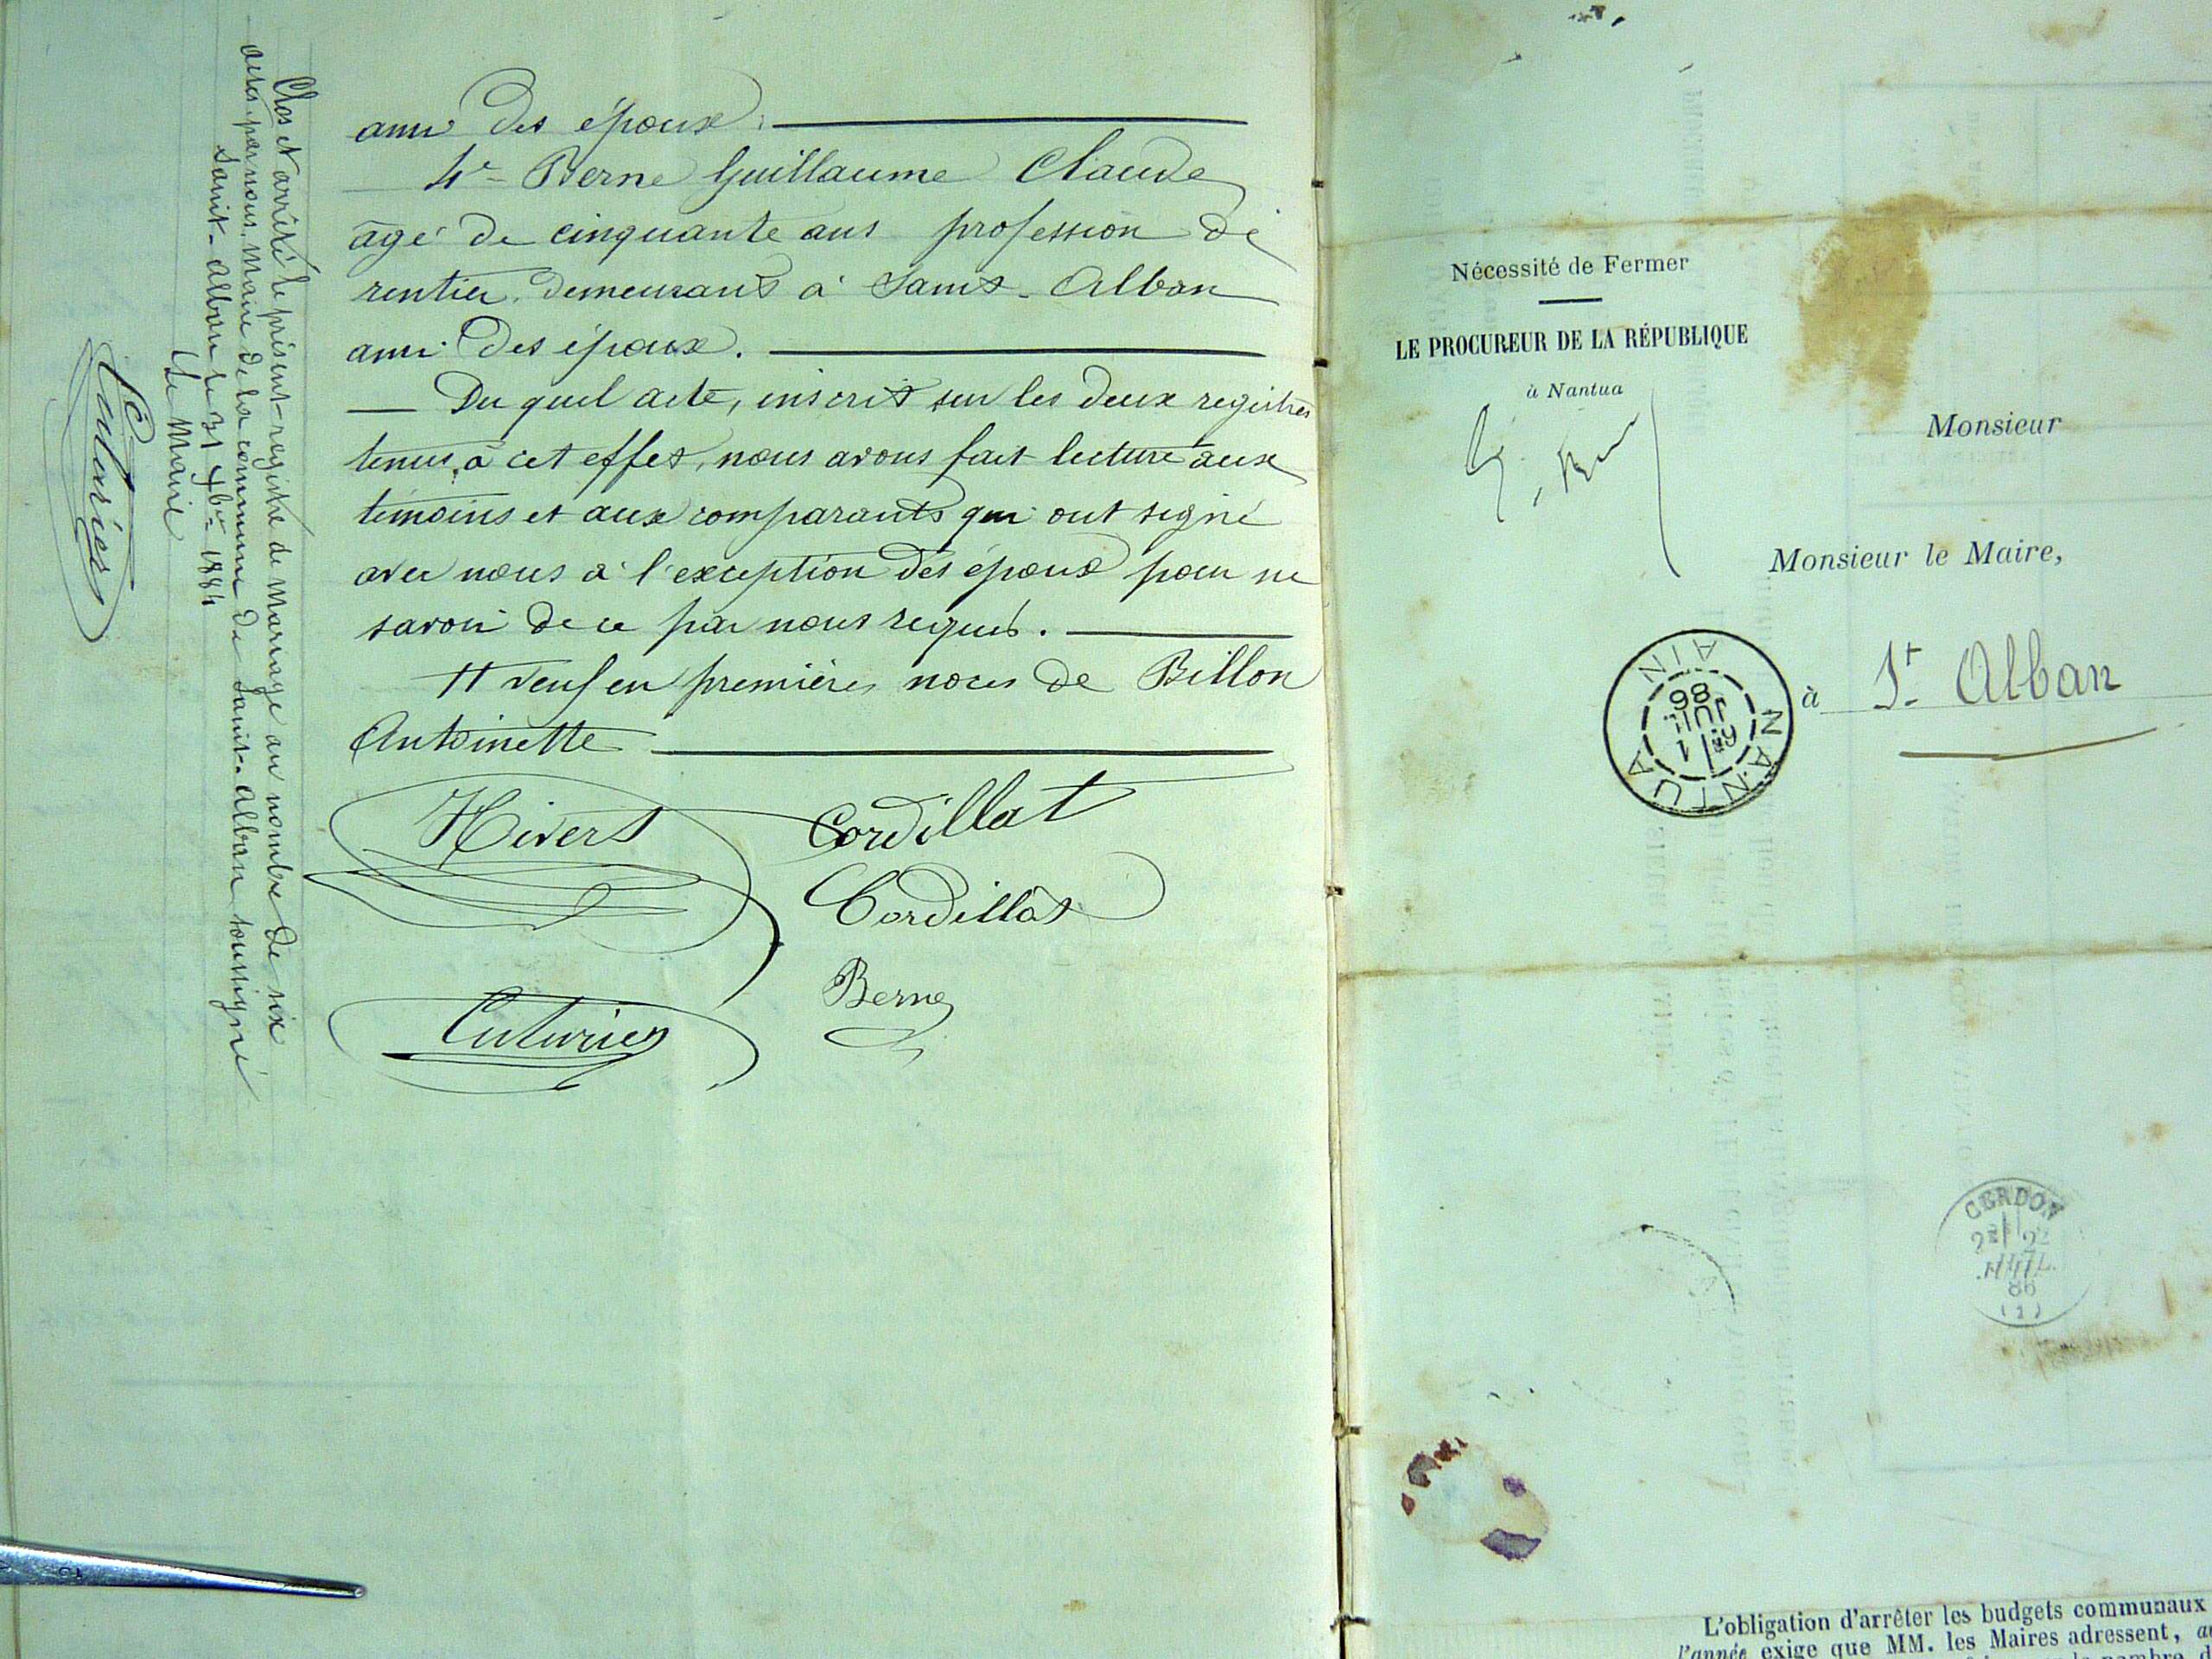 ami des époux.
4° Berne Guillaume Claude
âgé de cinquante ans profession de
rentier, demeurant à Saint-Alban
ami des époux.
Du quel acte, inscrit sur les deux registres
tenus à cet effet, nous avons fait lecture aux
témoins et aux comparants qui ont signé
avec nous à l'exception des époux pour ne
savoir de ce par nous requis.
tt veuf en premières noces de Billon
Antoinette
Hivert Cordillat
Cordillat
Berne
Cuturier
Clos et arrêté le présent registre de Mariage au nombre de six
actes par nous, Maire de la commune de Saint-Alban soussigné
Saint-Alban le 31 Xbre 1884
Le Maire
Cuturier
Nécessité de Fermer
LE PROCUREUR DE LA RÉPUBLIQUE
à Nantua
Monsieur
Monsieur le Maire,
à St Alban
NANTUA
AIN
JUIL
86
CERDON
22
JUIL.
86
(1)
L'obligation d'arrêter les budgets communaux
l'année exige que MM. les Maires adressent,